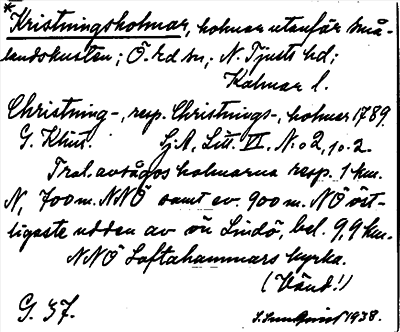 *Kristningsholmar, holmar utanför Små-
landskusten; Ö. Ed sn, N. Tjusts hd;
Kalmar l.
Christning-, resp. Christnings-, holmar 1789.
G. Khui. Gj A, Litt. VI. No 2, 10.2.
Trol. avsågos holmarna resp. 1 km.
N, 700 m. NNÖ samt ev. 900 m. NÖ öst-
ligaste udden av ön Lindö, bel. 9,9 km.
NNÖ Loftahammars kyrka.
(Vänd!)
G. 37. 1938.